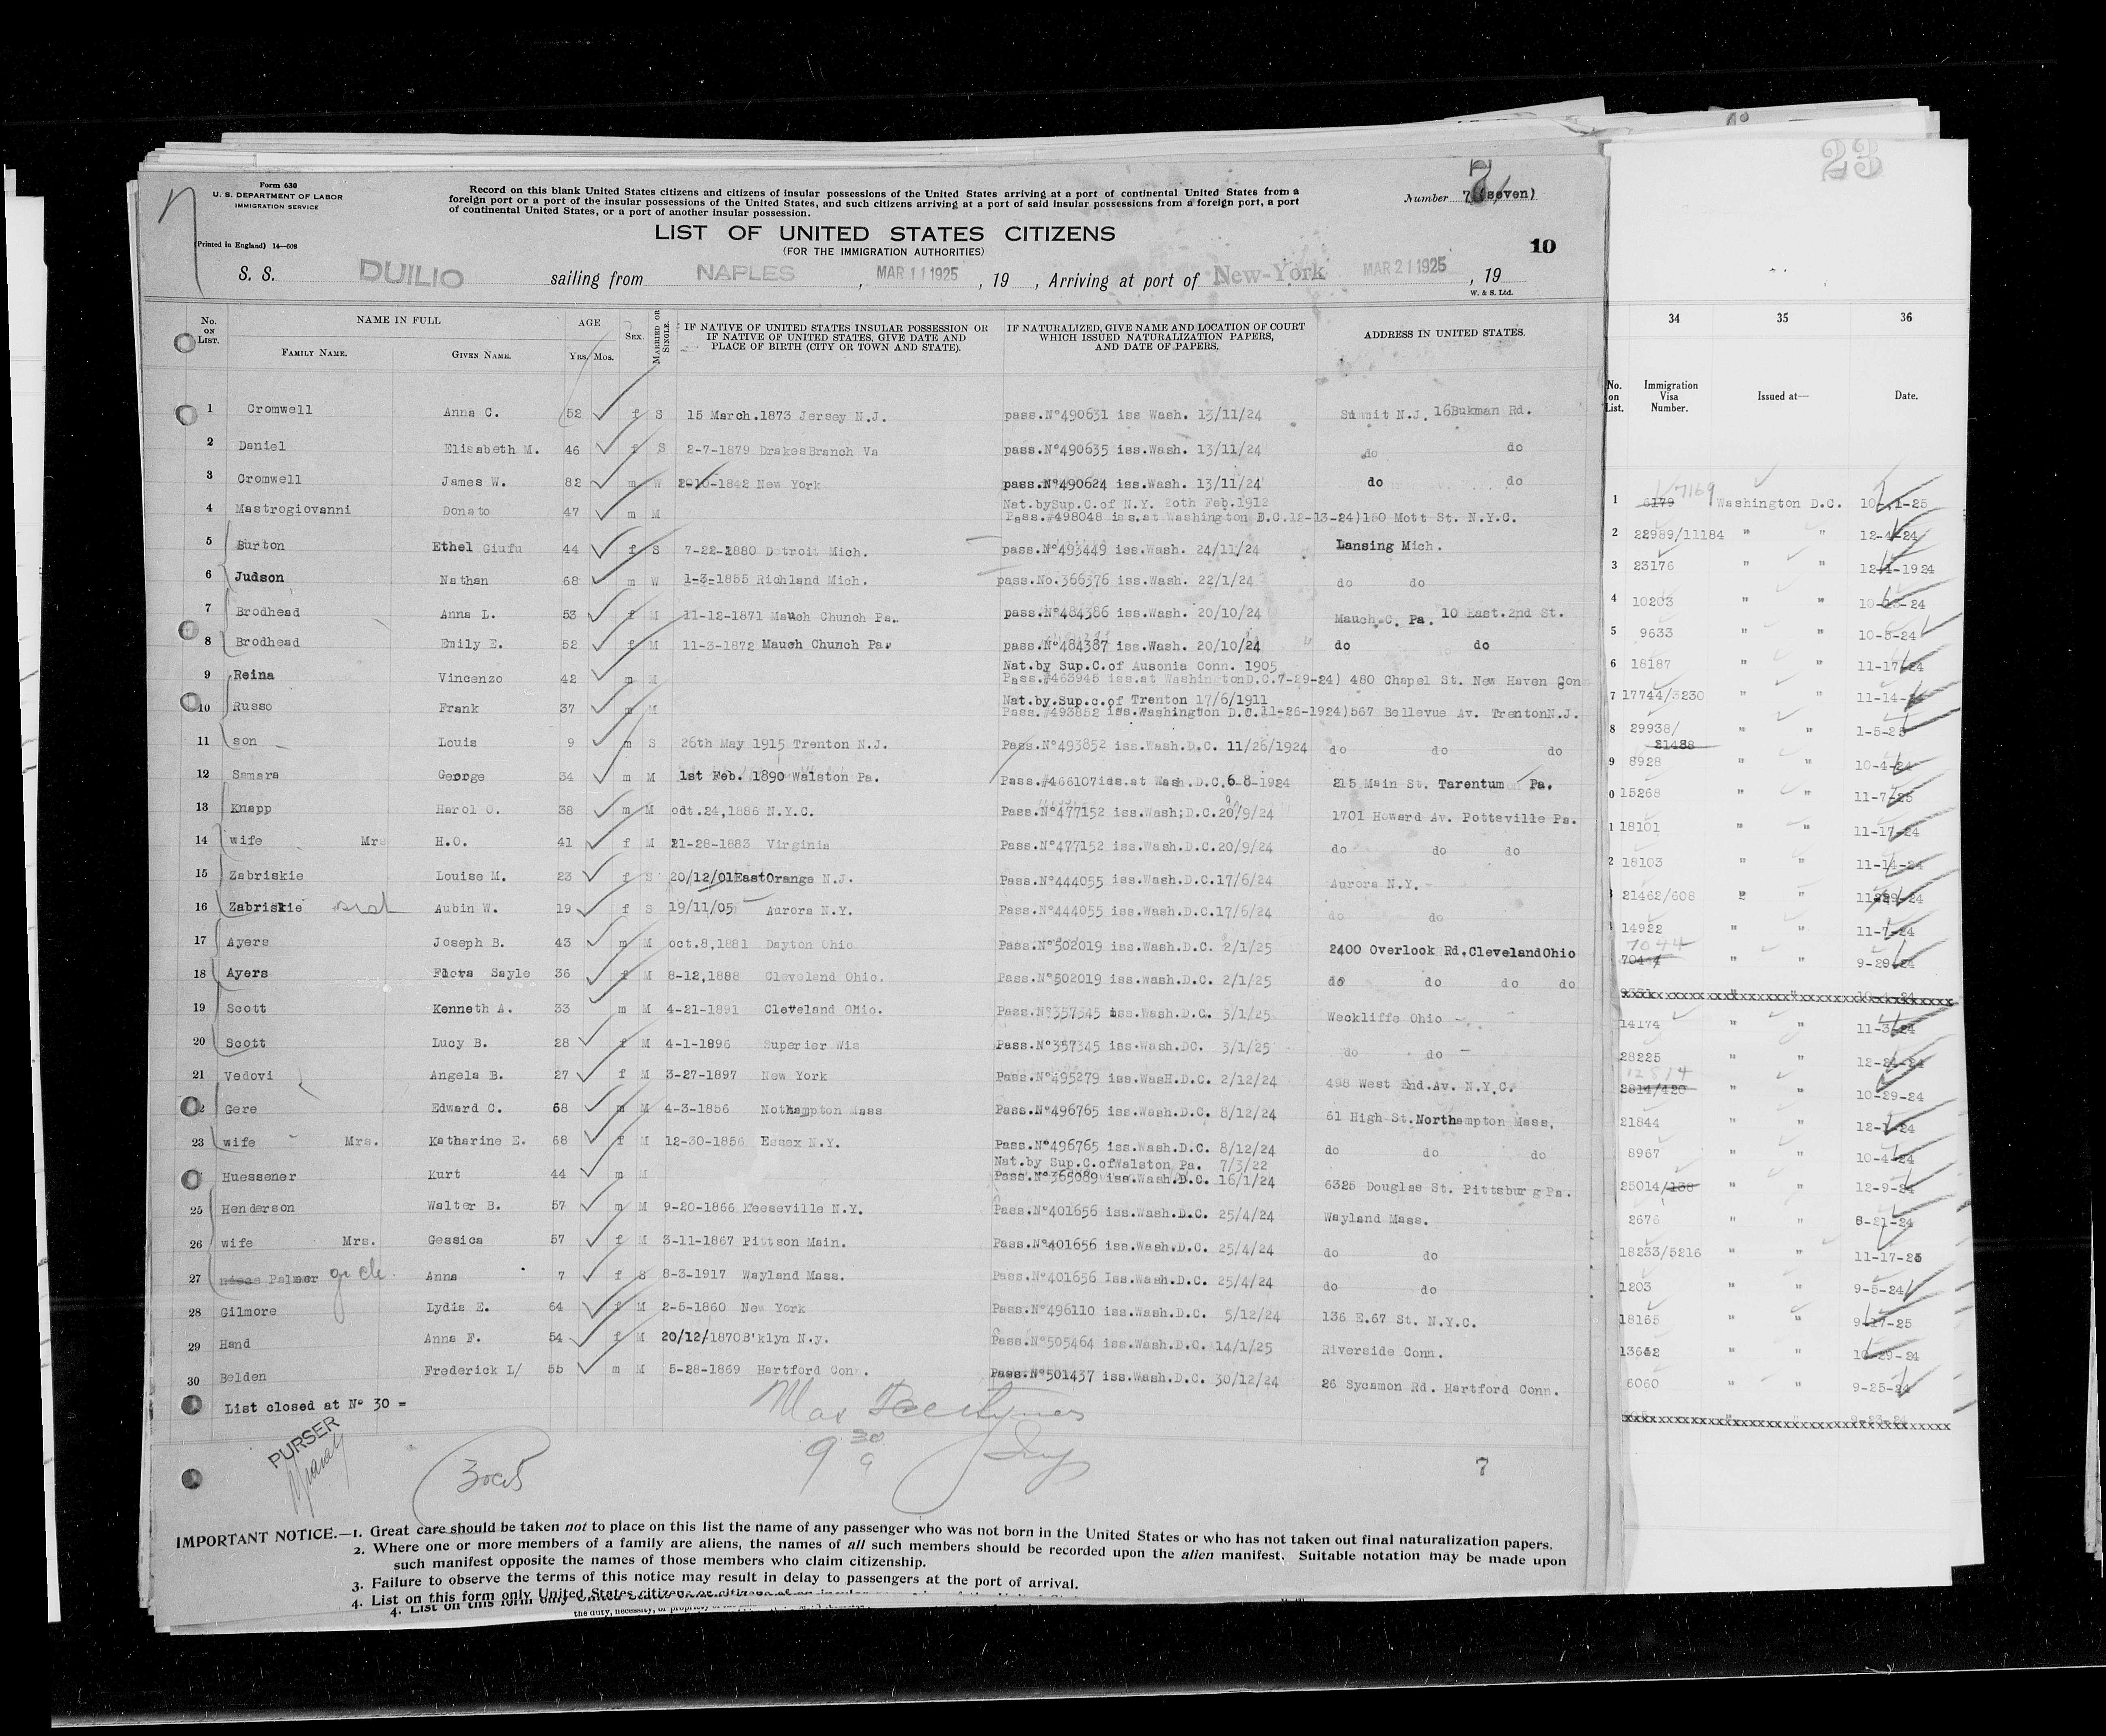 23
Form 630
U. S. DEPARTMENT OF LABOR
IMMIGRATION SERVICE
(Printed in England) 14—608
Record on this blank United States citizens and citizens of insular possessions of the United States arriving at a port of continental United States from a
foreign port or a port of the insular possessions of the United States, and such citizens arriving at a port of said insular possessions from a foreign port, a port
of continental United States, or a port of another insular possession.
Number 7 (seven)
LIST OF UNITED STATES CITIZENS
(FOR THE IMMIGRATION AUTHORITIES)
10
S. S. DUILIO sailing from NAPLES, MAR 11 1925, 19 , Arriving at port of New-York MAR 21 1925, 19
W. & S. Ltd.
No. ON LIST. NAME IN FULL AGE SEX. MARRIED OR SINGLE. IF NATIVE OF UNITED STATES INSULAR POSSESSION OR IF NATIVE OF UNITED STATES, GIVE DATE AND PLACE OF BIRTH (CITY OR TOWN AND STATE). IF NATURALIZED, GIVE NAME AND LOCATION OF COURT WHICH ISSUED NATURALIZATION PAPERS, AND DATE OF PAPERS. ADDRESS IN UNITED STATES.
FAMILY NAME. GIVEN NAME. YRS. MOS.
1 Cromwell Anna C. 52 f S 15 March.1873 Jersey N.J. pass.Nº490631 iss Wash. 13/11/24 Summit N.J. 16Bukman Rd.
2 Daniel Elisabeth M. 46 f S 2-7-1879 DrakesBranch Va pass.Nº490635 iss.Wash. 13/11/24 do do
3 Cromwell James W. 82 m W 2010-1842 New York pass.Nº490624 iss.Wash. 13/11/24 do do
Nat.bySup.C.of N.Y. 20th Feb.1912
4 Mastrogiovanni Donato 47 m M Pass.#498048 iss.at Washington D.C.12-13-24)150 Mott St. N.Y.C.
5 Burton Ethel Giufu 44 f S 7-22-1880 Detroit Mich. pass.Nº493449 iss.Wash. 24/11/24 Lansing Mich.
6 Judson Nathan 68 m W 1-3-1855 Richland Mich. pass.No.366376 iss.Wash. 22/1/24 do do
7 Brodhead Anna L. 53 f M 11-12-1871 Mauch Chunch Pa. pass.Nº484386 iss.Wash. 20/10/24 Mauch.C. Pa. 10 East.2nd St.
8 Brodhead Emily E. 52 f M 11-3-1872 Mauch Chunch Pa. pass.Nº484387 iss.Wash. 20/10/24 do do
Nat.by Sup.C.of Ausonia Conn. 1905
9 Reina Vincenzo 42 m M Pass.#463945 iss.at WashingtonD.C.7-29-24) 480 Chapel St. New Haven Con
Nat.by.Sup.c.of Trenton 17/6/1911
10 Russo Frank 37 m M Pass.#493852 iss.Washington D.C.11-26-1924)567 Bellevue Av. TrentonN.J.
11 son Louis 9 m S 26th May 1915 Trenton N.J. Pass.Nº493852 iss.Wash.D.C. 11/26/1924 do do do
12 Samara George 34 m M 1st Feb. 1890 Walston Pa. Pass.#466107iss.at Wash.D.C.6 8-1924 215 Main St. Tarentum Pa.
13 Knapp Harol O. 38 m M odt.24,1886 N.Y.C. Pass.Nº477152 iss.Wash;D.C.20/9/24 1701 Howard Av. Pottsville Pa.
14 wife Mrs H.O. 41 f M 21-28-1883 Virginia Pass.Nº477152 iss.Wash.D.C.20/9/24 do do do
15 Zabriskie Louise M. 23 f S 20/12/01EastOrange N.J. Pass.Nº444055 iss.Wash.D.C.17/6/24 Aurora N.Y.
16 Zabriskie Aubin W. 19 f S 19/11/05 Aurora N.Y. Pass.Nº444055 iss.Wash.D.C.17/6/24 do do
17 Ayers Joseph B. 43 m M oct.8,1881 Dayton Ohio Pass.Nº502019 iss.Wash.D.C. 2/1/25 2400 Overlook Rd.ClevelandOhio
18 Ayers Flora Sayle 36 f M 8-12,1888 Cleveland Ohio. Pass.Nº502019 iss.Wash.D.C. 2/1/25 do do do do
19 Scott Kenneth A. 33 m M 4-21-1891 Cleveland Ohio. Pass.Nº357345 iss.Wash.D.C. 3/1/25 Weckliffe Ohio
20 Scott Lucy B. 28 f M 4-1-1896 Superier Wis Pass.Nº357345 iss.Wash.DC. 3/1/25 do do
21 Vedovi Angela B. 27 f M 3-27-1897 New York Pass.Nº495279 iss.WasH.D.C. 2/12/24 498 West End.Av. N.Y.C.
2 Gere Edward C. 68 m M 4-3-1856 Nothampton Mass Pass.Nº496765 iss.Wash.D.C. 8/12/24 61 High St.Northampton Mass,
23 wife Mrs. Katharine E. 68 f M 12-30-1856 Essex N.Y. Pass.Nº496765 iss.Wash.D.C. 8/12/24 do do do
Nat.by Sup.C.ofWalston Pa. 7/3/22
Huessener Kurt 44 m M Pass.Nº365089 iss.Wash.D.C. 16/1/24 6325 Douglas St. Pittsburg Pa.
25 Henderson Walter B. 57 m M 9-20-1866 Keeseville N.Y. Pass.Nº401656 iss.Wash.D.C. 25/4/24 Wayland Mass.
26 wife Mrs. Gessica 57 f M 3-11-1867 Pittson Main. Pass.Nº401656 iss.Wash.D.C. 25/4/24 do do
27 niece Palmer gr ch. Anna 7 f S 8-3-1917 Wayland Mass. Pass.Nº401656 Iss.Wash.D.C. 25/4/24 do do
28 Gilmore Lydia E. 64 f M 2-5-1860 New York Pass.Nº496110 iss.Wash.D.C. 5/12/24 136 E.67 St. N.Y.C.
29 Hand Anna F. 54 f M 20/12/1870B'klyn N.y. Pass.Nº505464 iss.Wash.D.C. 14/1/25 Riverside Conn.
30 Belden Frederick L/ 55 m M 5-28-1869 Hartford Conn. Pass.Nº501437 iss.Wash.D.C. 30/12/24 26 Sycamon Rd. Hartford Conn.
List closed at Nº 30 =
PURSER
9 30 a
7
IMPORTANT NOTICE.—1. Great care should be taken not to place on this list the name of any passenger who was not born in the United States or who has not taken out final naturalization papers.
2. Where one or more members of a family are aliens, the names of all such members should be recorded upon the alien manifest. Suitable notation may be made upon
such manifest opposite the names of those members who claim citizenship.
3. Failure to observe the terms of this notice may result in delay to passengers at the port of arrival.
4. List on this form only United States citizens or citizens of an insular
4. List on this form only United States
the duty, necessity, or propriety
34 35 36
No. on List. Immigration Visa Number. Issued at— Date.
1 6179 7169 Washington D.C. 10- -1-25
2 22989/11184 " " 12-4-24
3 23176 " " 12-1-1924
4 10203 " " 10-15-24
5 9633 " " 10-5-24
6 18187 " " 11-17-24
7 17744/3230 " " 11-14-24
8 29938/ " " 1-5-25
21488
9 8928 " " 10-4-24
0 15268 " " 11-7-25
1 18101 " " 11-17-24
2 18103 " " 11-14-24
21462/608 " " 1129-24
14922 " " 11-7-24
7044
70444 " " 9-29-24
14174 " " 11-3-24
28225 " " 12-24-24
12814
2814/420 " " 10-29-24
21844 " " 12-1-24
8967 " " 10-4-24
25014/138 " " 12-9-24
2676 " " 8-21-24
18233/5216 " " 11-17-25
1203 " " 9-5-24
18165 " " 9-17-25
13642 " " 10-29-24
6060 " " 9-25-24